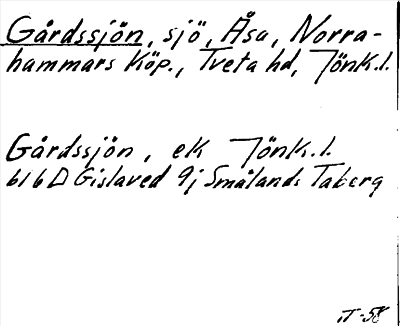 Gårdssjön, sjö, Åsa, Norra-
hammars Köp., Tveta hd, Jönk.l.
Gårdssjön, ek Jönk.l.
616D Gislaved 9j Smålands Taberg
IT-58